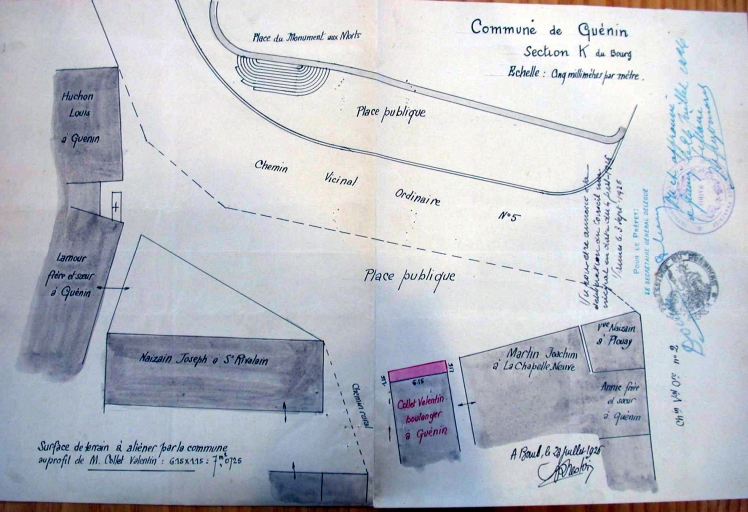 Commune de Guénin
Section K du Bourg
Echelle : Cinq millimètres par mètre.
Place du Monument aux Morts
Place publique
Huchon
Louis
à Guénin
Chemin Vicinal Ordinaire N°5
Lamour
frère et sœur
à Guénin
Place publique
Naizain Joseph à St Rivalain
Chemin rural
Martin Joachim
à La Chapelle Neuve
Vve Naizain
à Plouay
Annic frère
et sœur
à Guénin
1.15
1.15
6.15
Collet Valentin
boulanger
à Guénin
Surface de terrain à aliéner par la commune
au profil de M. Collet Valentin : 6.15 x 1.15 :
A Baud, le 29 Juillet 1925
Vu pour être annexé à la
délibération du Conseil mu-
nicipal en date du
Vannes le 3 Sept. 1925
POUR LE PRÉFET:
LE SECRÉTAIRE GÉNÉRAL DÉLÉGUÉ